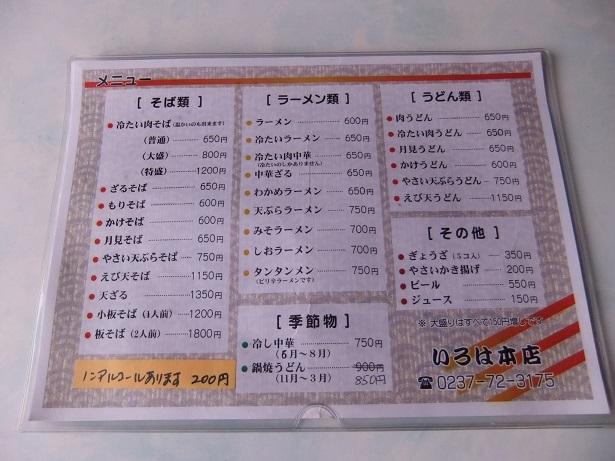 メニュー
[ そば類 ]
冷たい肉そば (温かいのも出来ます)
(普通) 650円
(大盛) 800円
(特盛) 1200円
ざるそば 650円
もりそば 600円
かけそば 600円
月見そば 650円
やさい天ぷらそば 750円
えび天そば 1150円
天ざる 1350円
小板そば (1人前) 1200円
板そば (2人前) 1800円
ノンアルコールあります 200円
[ ラーメン類 ]
ラーメン 600円
冷たいラーメン 650円
冷たい肉中華 650円
(冷たいのしかありません)
中華ざる 650円
わかめラーメン 650円
天ぷらラーメン 750円
みそラーメン 700円
しおラーメン 700円
タンタンメン 750円
(ピリ辛ラーメンです)
[ 季節物 ]
冷し中華 750円
(6月〜8月)
鍋焼うどん 900円
(11月〜3月) 850円
[ うどん類 ]
肉うどん 650円
冷たい肉うどん 650円
月見うどん 650円
かけうどん 600円
やさい天ぷらうどん 750円
えび天うどん 1150円
[ その他 ]
ぎょうざ (5コ入) 350円
やさいかき揚げ 200円
ビール 550円
ジュース 150円
※ 大盛りはすべて150円増しです
いろは本店
☎ 0237-72-3175